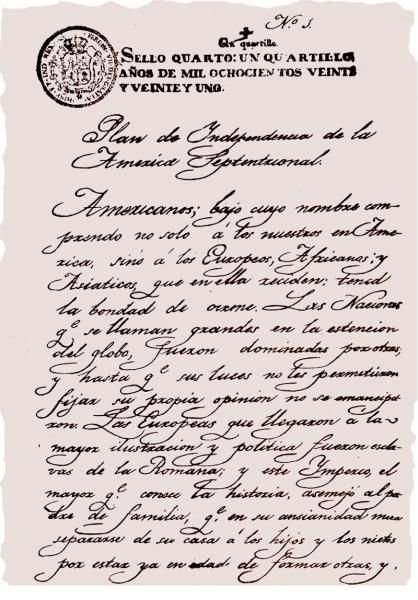 N.o 1.
Un quartillo.
SELLO QUARTO: UN QUARTILLO
AÑOS DE MIL OCHOCIENTOS VEINTE
Y VEINTE Y UNO.
Plan de Independencia de la
America Septentrional.
Americanos; bajo cuyo nombre com-
prendo no solo á los nuestros en Ame-
rica, sino á los Europeos, Africanos; y
Asiaticos, que en ella reciden: tened
la bondad de oirme. Las Naciones
q.e se llaman grandes en la estencion
del globo, fueron dominadas por otras;
y hasta q.e sus luces no les permitieron
fijar su propia opinion no se emancipa-
ron. Las Europeas que llegaron á la
mayor ilustracion y politica fueron escla-
vas de la Romana; y este Imperio, el
mayor q.e conoce la historia, asemejó al pa-
dre de familia, q.e en su ansianidad mira
separarse de su casa á los hijos y los nietos
por estar ya en edad de formar otras, y